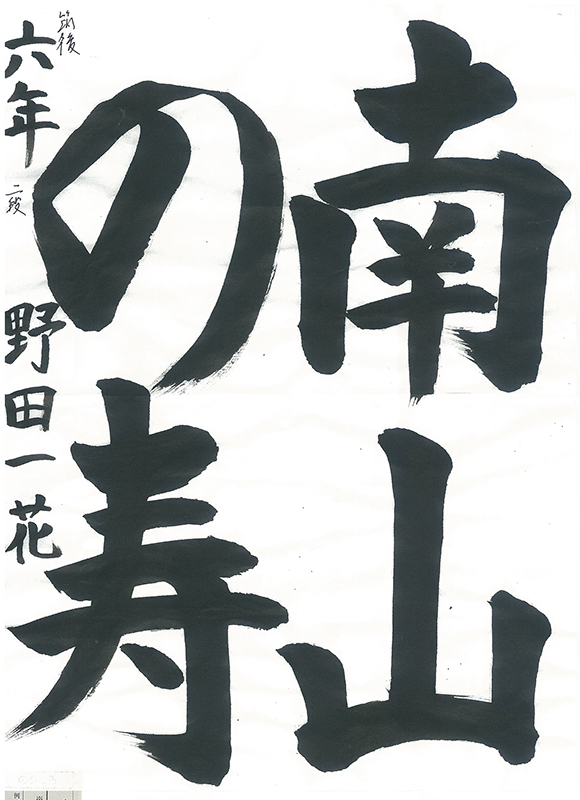 南山
の寿
筑後
六年 二段 野田一花